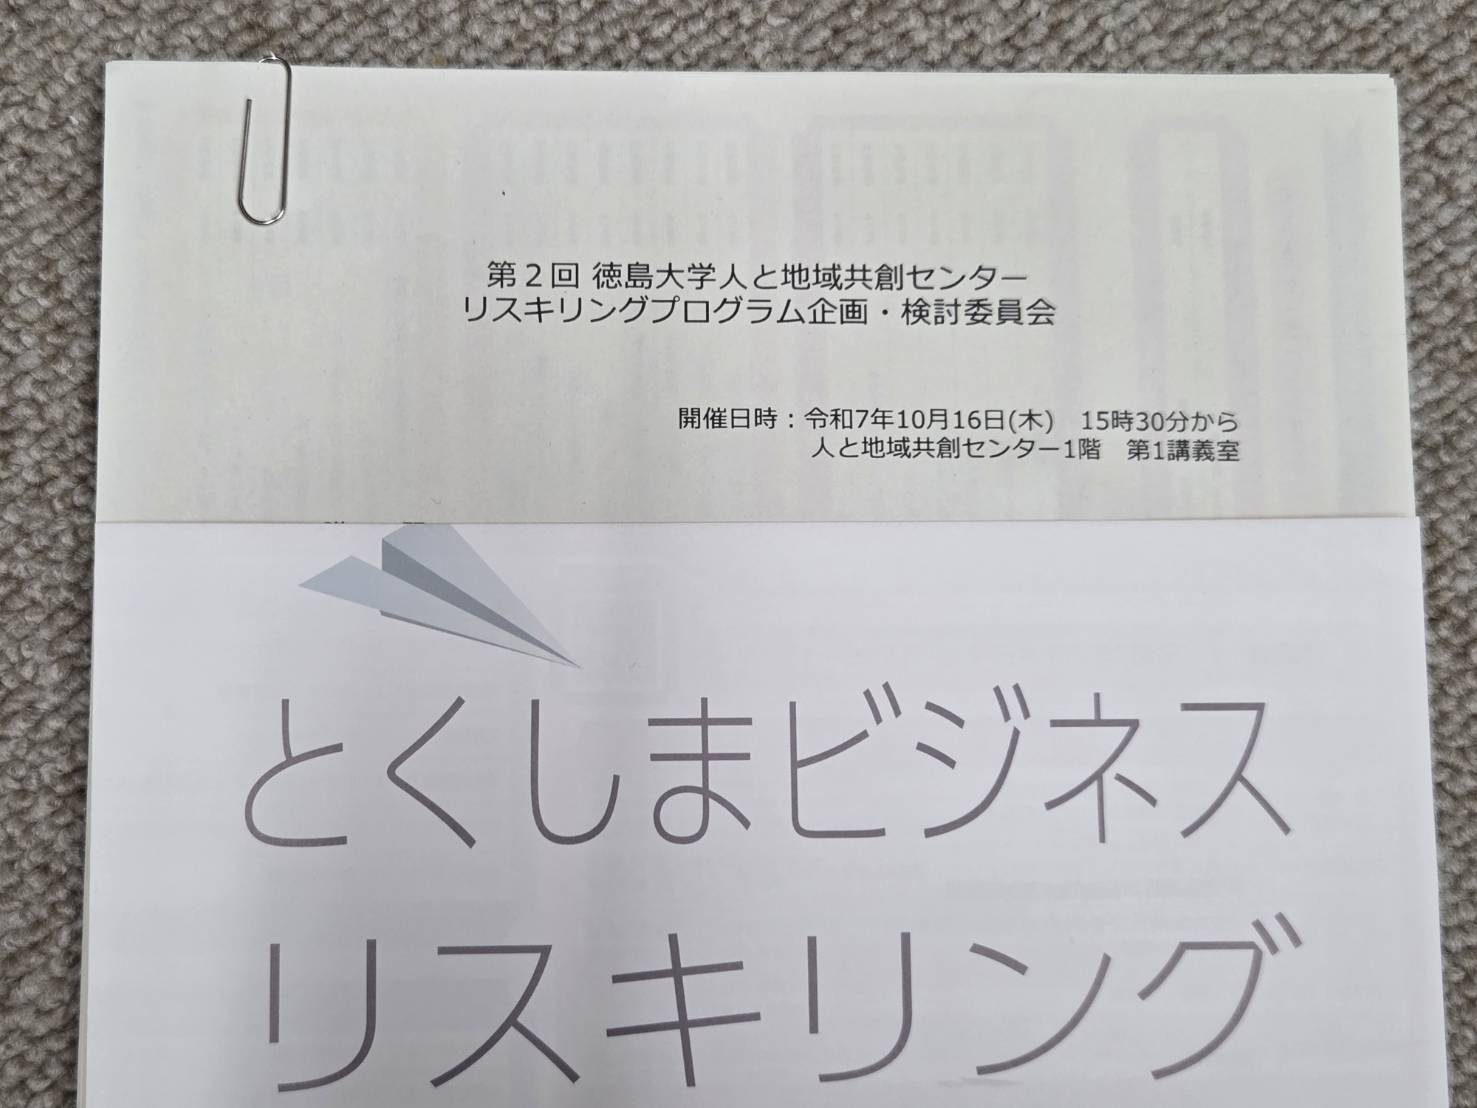 第2回 徳島大学人と地域共創センター
リスキリングプログラム企画・検討委員会
開催日時：令和7年10月16日(木)　15時30分から
人と地域共創センター1階　第1講義室
とくしまビジネス
リスキリング